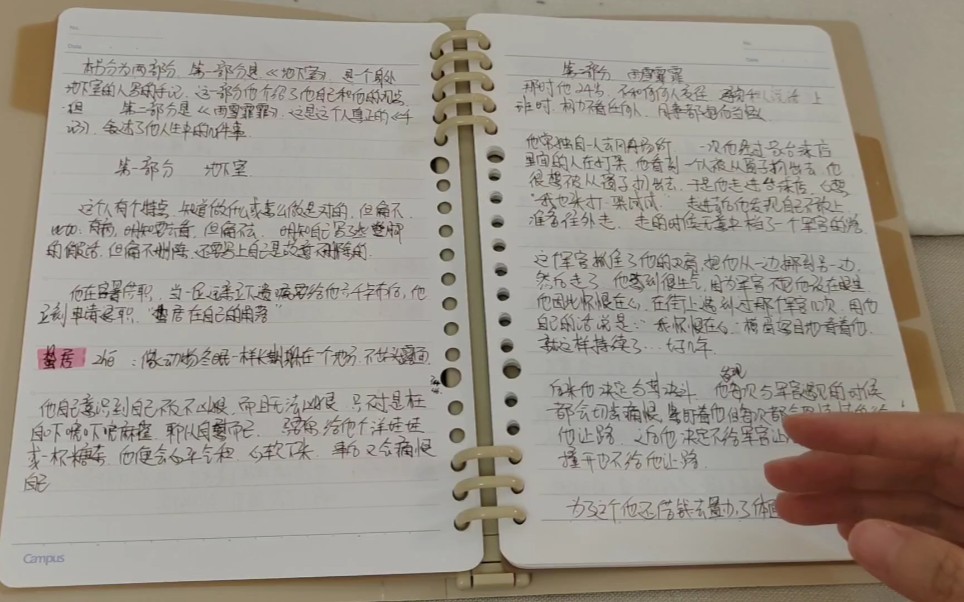 No.
Date
本书分为两部分,第一部分是《地下室》,是一个身处
地下室的人写的手记,这一部分他介绍了他自己和他的观点
但 第二部分是《雨雪霏霏》,这是这个人真正的《手
记》,叙述了他人生中的几件事
第一部分 地下室
这个人有个特点,知道做什么或怎么做是对的,但偏不
比如:有病,明知要去看,但偏不去. 明知自己写了些蹩脚
的俏皮话,但偏不删掉,还要写上自己是故意不删除的.
他在官署任职,当一远亲立下遗嘱留给他六千卢布后,他
立刻申请退职,“蛰居在自己的角落”
蛰居 zhé :像动物冬眠一样长期躲在一个地方,不出头露面
他自己意识到自己不仅不凶狠,而且无法凶狠,只不过是在
白吓唬吓唬麻雀,聊以自慰而已.
或一杯糖茶,他便会心平气和,心软下来,事后又会痛恨
自己
Campus
No.
Date
第二部分 雨雪霏霏
那时他24岁,不和任何人来往
班时,
他常独自一人去 一次他经过一台球店
里面的人在打架,他看到一人被从窗子扔出去,他
很想被从窗子扔出去,于是他走进台球店,心想
“我也来打一架试试” 走进后他发现自己不敢上
准备往外走. 走的时候无意中挡了一个军官的路
这个军官抓住了他的双肩,把他从一边挪到另一边
然后走了. 他感到很生气,因为军官不把他放在眼里
他因此怀恨在心,在街上遇到过那个军官几次,用他
自己的话说是:“我怀恨在心” 看着他.
就这样持续了…好几年
后来他决定与其决斗. 发现他每次与军官遇见的时候
都会
他让路. 后他决定不给军官让
撞开也不给他让路
为了这个他还借钱去置办了体面